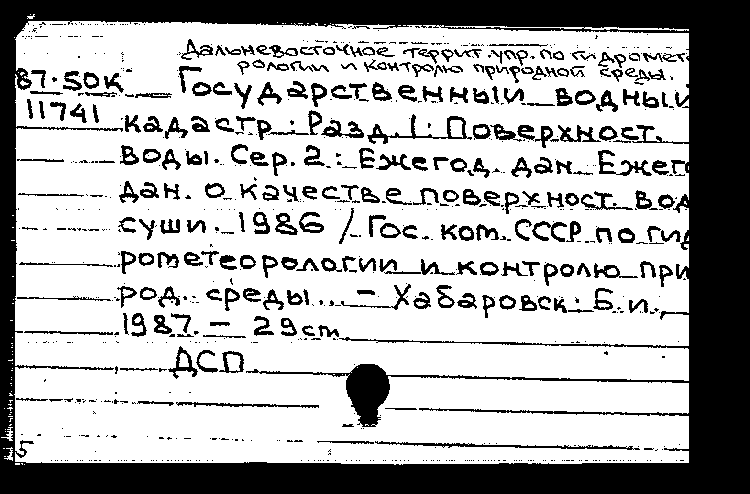 Дальневосточное террит. упр. по гидромет
рологии и контролю природной среды.
87-50К Государственный водный
11741 кадастр : Разд. 1: Поверхност.
воды. Сер. 2 : Ежегод. дан. Ежег
дан. о качестве поверхност. вод
суши. 1986 / Гос. ком. СССР по гид
рометеорологии и контролю при
род. среды... – Хабаровск : Б. и.,
1987. – 29 см.
ДСП.
5